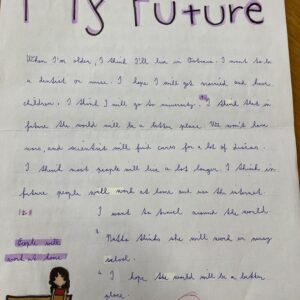 My Future
When I'm older, I think I'll live in I want to be
a dentist or nurse. I hope I will get married and have
children. I think I will go to university. I think that in
future the world will be a better place. We won't have
wars, and scientist will find cures for a lot of diseases.
I think most people will live a lot longer. I think in
future people will work at home and use the internet.
I want to travel around the world.
People will
work at home
thinks she will work in many
school.
I hope the world will be a better
place.